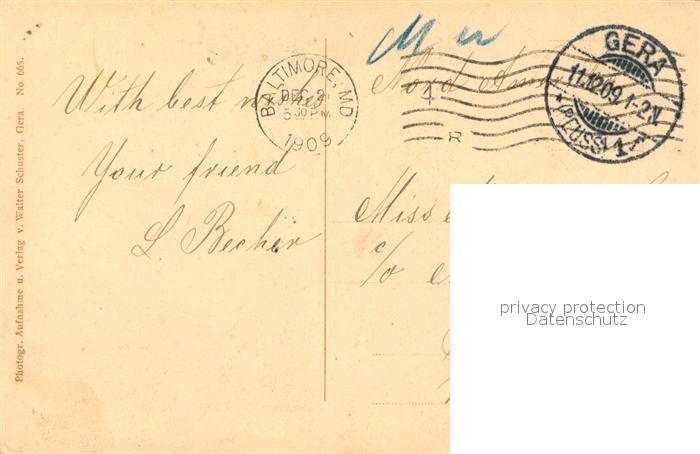 Photogr. Aufnahme u. Verlag v. Walter Schuster, Gera No 665.
With best wishes
Your friend
L. Becher
BALTIMORE, MD
DEC 2
30 PM
1909
4
R
Nord
GERA
11.12.09. 1-2.N
(REUSS)
1
Miss
c/o
privacy protection
Datenschutz